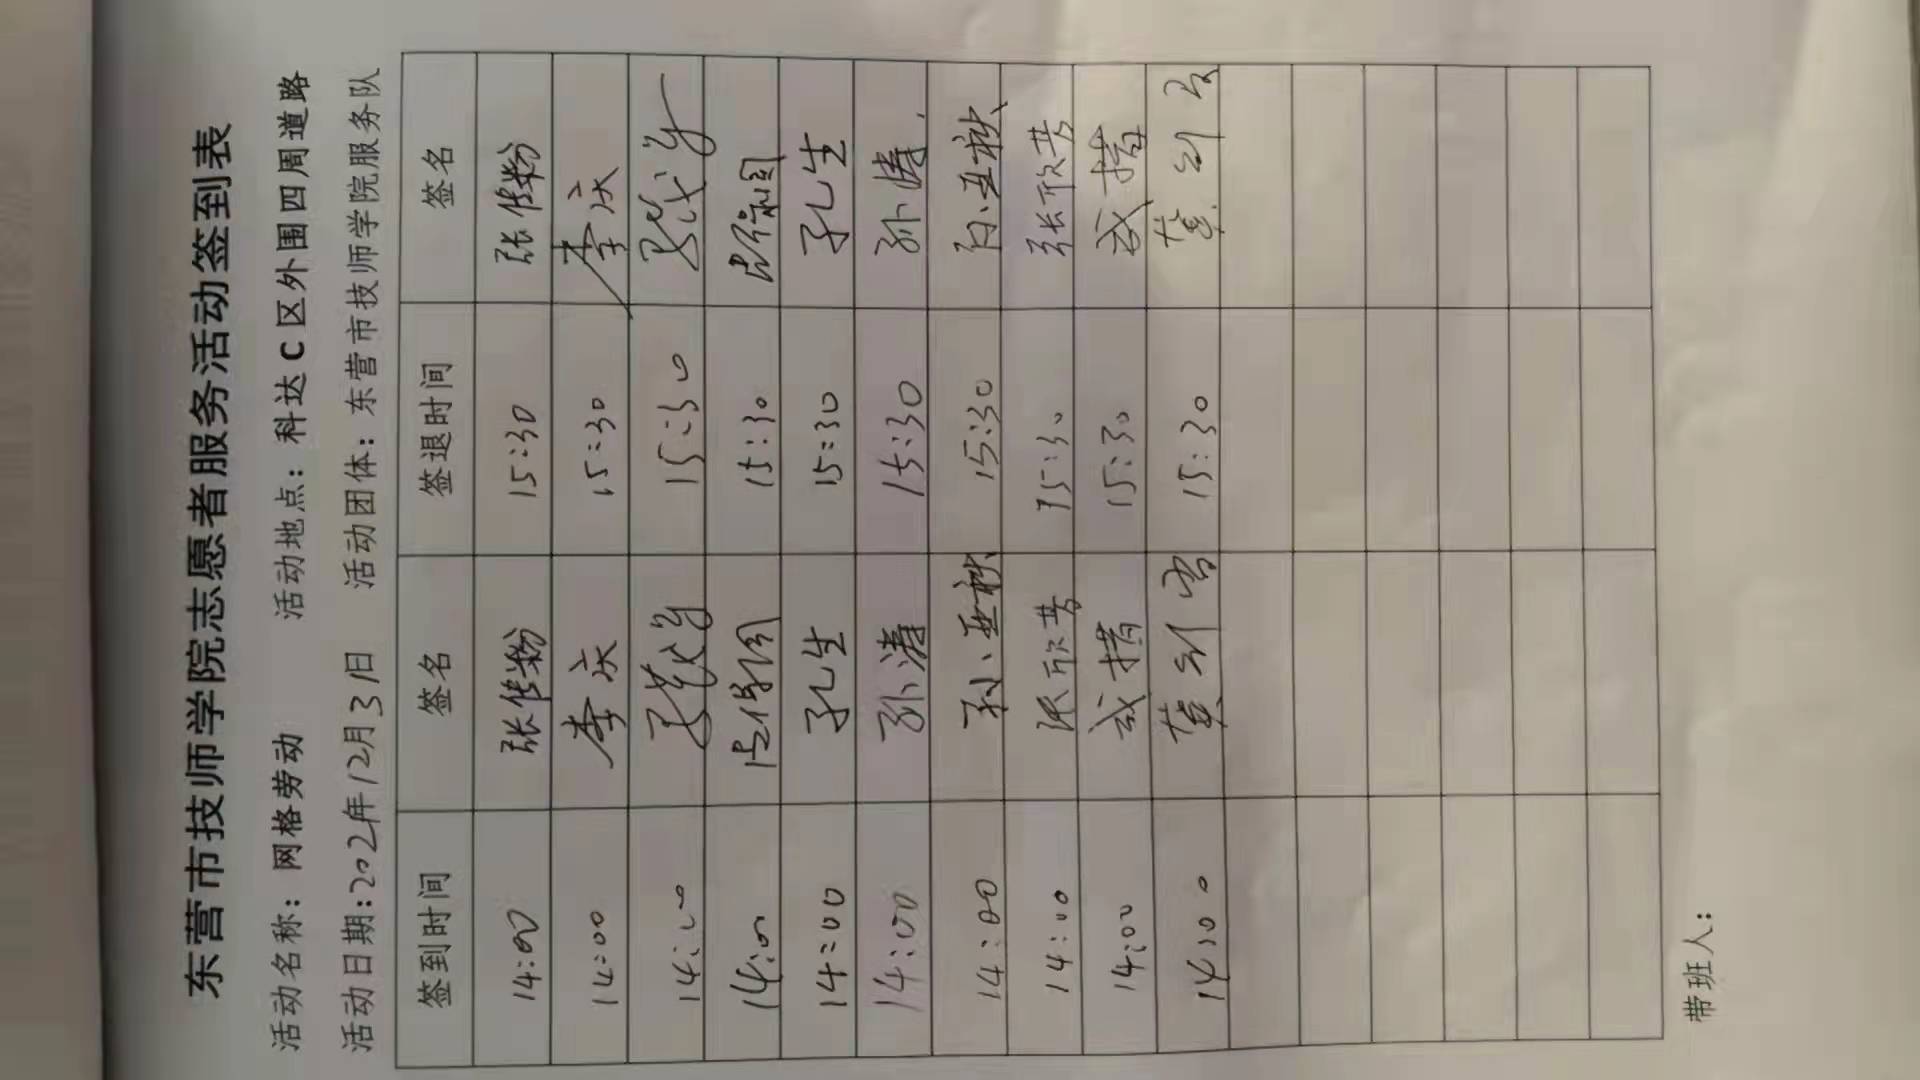 东营市技师学院志愿者服务活动签到表
活动名称：网格劳动 活动地点：科达C区外围四周道路
活动日期:202年12月31日 活动团体：东营市技师学院服务队
签到时间 签名 签退时间 签名
14:00 张佳粉 15:30 张佳粉
14:00 李庆 15:30 李庆
14:00 15:30
14:00 15:30
14:00 孔生 15:30 孔生
14:00 孙涛 15:30 孙涛
14:00 孙亚秋 15:30 孙亚秋
14:00 张欣 15:30 张欣
14:00 15:30
14:00 15:30
带班人：